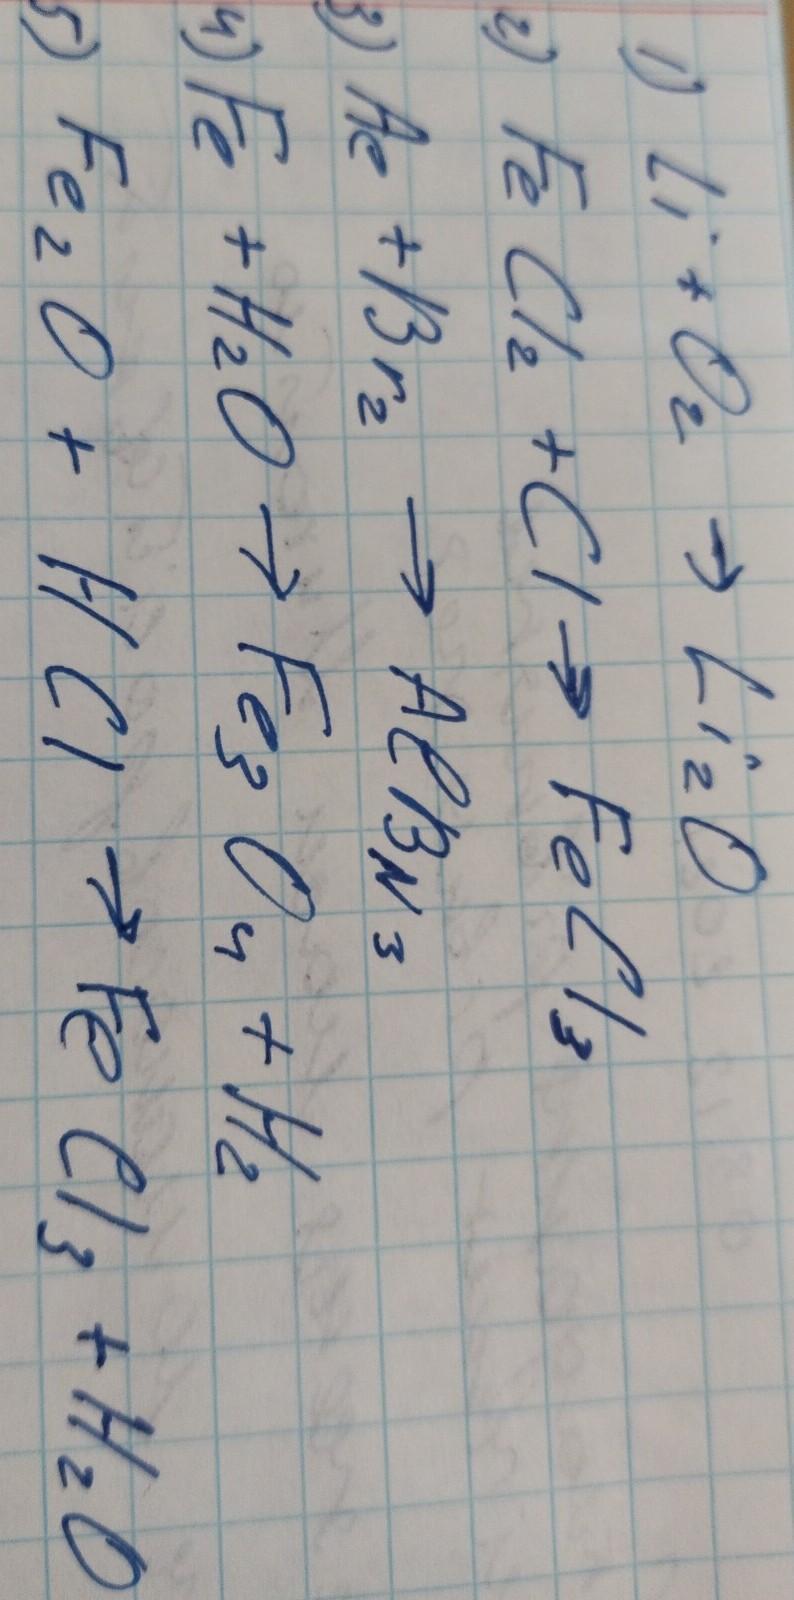 1) Li + O₂ → Li₂O
2) FeCl₂ + Cl → FeCl₃
3) Al + Br₂ → AlBr₃
4) Fe + H₂O → Fe₃O₄ + H₂
5) Fe₂O + HCl → FeCl₃ + H₂O